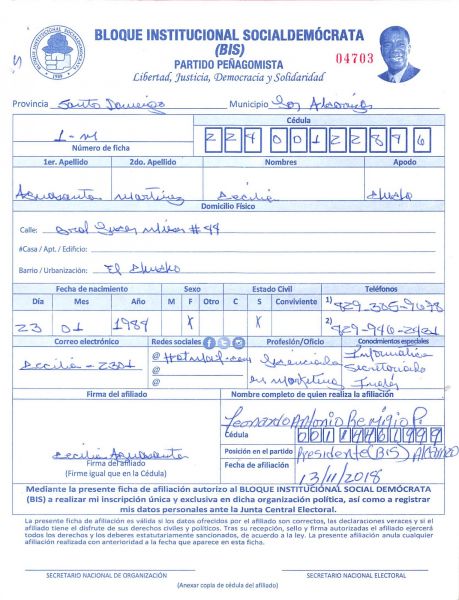 BLOQUE INSTITUCIONAL SOCIALDEMÓCRATA
(BIS)
PARTIDO PEÑAGOMISTA
Libertad, Justicia, Democracia y Solidaridad
04703
Provincia Santo Domingo Municipio Los Alcarrizos
Cédula
Número de ficha
1er. Apellido 2do. Apellido Nombres Apodo
Aguasanta Martínez Decilia
Domicilio Físico
Calle: #44
#Casa / Apt. / Edificio:
Barrio / Urbanización: El
Fecha de nacimiento Sexo Estado Civil Teléfonos
Día Mes Año M F Otro C S Conviviente
23 01 1984 X X
1) 829-305-9698
2) 829-940-2431
Correo electrónico Redes sociales Profesión/Oficio Conocimientos especiales
Decilia-2301 @Hotmail.com Licenciada Informática
@ en marketing Secretariado
@ Inglés
Firma del afiliado Nombre completo de quien realiza la afiliación
Leonardo Antonio Remigio P.
Cédula
Decilia Aguasanta
Firma del afiliado
(Firme igual que en la Cédula)
Posición en el partido Presidente (BIS)
Fecha de afiliación 13/11/2018
Mediante la presente ficha de afiliación autorizo al BLOQUE INSTITUCIONAL SOCIAL DEMÓCRATA
(BIS) a realizar mi inscripción única y exclusiva en dicha organización política, así como a registrar
mis datos personales ante la Junta Central Electoral.
La presente ficha de afiliación es válida si los datos ofrecidos por el afiliado son correctos, las declaraciones veraces y si el
afiliado tiene el disfrute de sus derechos civiles y políticos. Tras su recepción, sello y firma autorizados el afiliado ejercerá
todos los derechos y los deberes estatutariamente sancionados, de acuerdo a la ley. La presente afiliación anula cualquier
afiliación realizada con anterioridad a la fecha que aparece en esta ficha.
SECRETARIO NACIONAL DE ORGANIZACIÓN SECRETARIO NACIONAL ELECTORAL
(Anexar copia de cédula del afiliado)